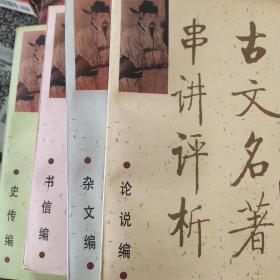 古文名著
串讲评析
论说编
杂文编
书信编
史传编